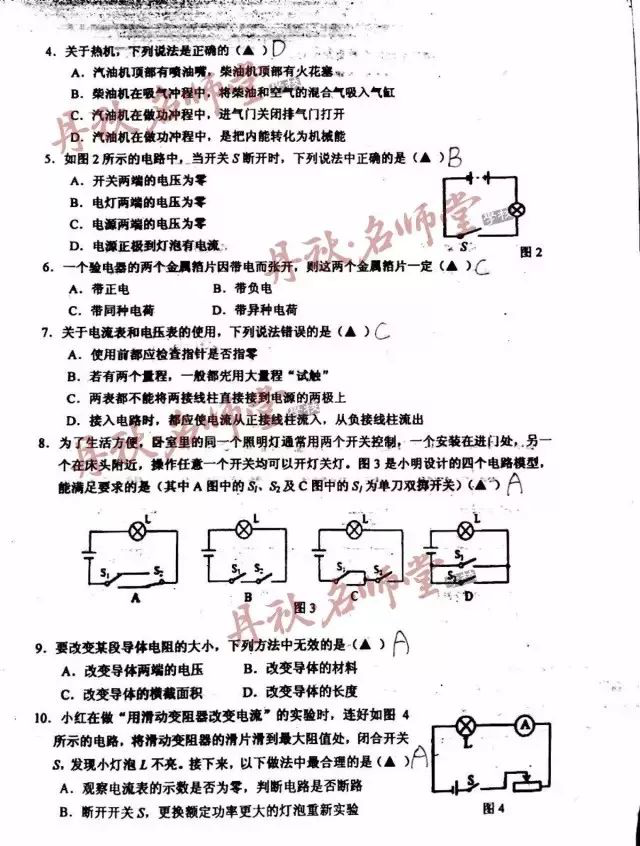 4．关于热机，下列说法是正确的（▲）D
A．汽油机顶部有喷油嘴，柴油机顶部有火花塞
B．柴油机在吸气冲程中，将柴油和空气的混合气吸入气缸
C．汽油机在做功冲程中，进气门关闭排气门打开
D．汽油机在做功冲程中，是把内能转化为机械能
5．如图2所示的电路中，当开关S断开时，下列说法中正确的是（▲）B
A．开关两端的电压为零
B．电灯两端的电压为零
C．电源两端的电压为零
D．电源正极到灯泡有电流
S
图2
6．一个验电器的两个金属箔片因带电而张开，则这两个金属箔片一定（▲）C
A．带正电 B．带负电
C．带同种电荷 D．带异种电荷
7．关于电流表和电压表的使用，下列说法错误的是（▲）C
A．使用前都应检查指针是否指零
B．若有两个量程，一般都先用大量程“试触”
C．两表都不能将两接线柱直接接到电源的两极上
D．接入电路时，都应使电流从正接线柱流入，从负接线柱流出
8．为了生活方便，卧室里的同一个照明灯通常用两个开关控制，一个安装在进门处，另一
个在床头附近，操作任意一个开关均可以开灯关灯。图3是小明设计的四个电路模型，
能满足要求的是（其中A图中的S₁、S₂及C图中的S₁为单刀双掷开关）（▲）A
L L L L
S₁ S₂ S₁ S₂ S₁ S₂ S₁ S₂
A B C D
图3
9．要改变某段导体电阻的大小，下列方法中无效的是（▲）A
A．改变导体两端的电压 B．改变导体的材料
C．改变导体的横截面积 D．改变导体的长度
10．小红在做“用滑动变阻器改变电流”的实验时，连好如图4
所示的电路，将滑动变阻器的滑片滑到最大阻值处，闭合开关
S，发现小灯泡L不亮。接下来，以下做法中最合理的是（▲）A
A．观察电流表的示数是否为零，判断电路是否断路
B．断开开关S，更换额定功率更大的灯泡重新实验
L A
S
图4
丹秋·名师堂学校
丹秋·名师堂学校
丹秋名师堂学校
丹秋名师堂学校